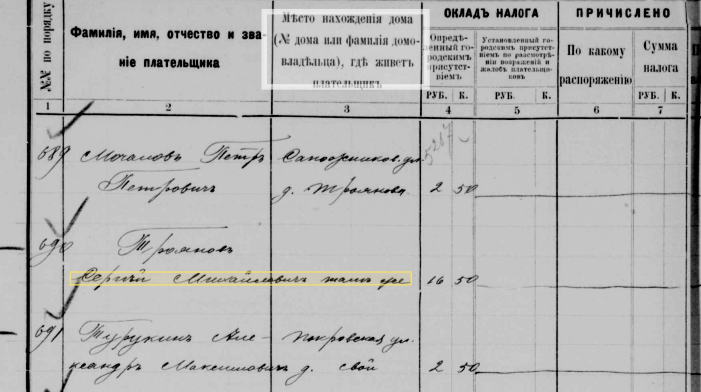 №№ по порядку
Фамилія, имя, отчество и зва-
ніе плательщика
Мѣсто нахожденія дома
(№ дома или фамилія домо-
владѣльца), гдѣ живетъ
плательщикъ
ОКЛАДЪ НАЛОГА
Опредѣ-
ленный го-
родскимъ
присутст-
віемъ
Установленный го-
родскимъ присутст-
віемъ по разсмотрѣ-
ніи возраженій и
жалобъ плательщи-
ковъ
ПРИЧИСЛЕНО
По какому
распоряженію
Сумма
налога
РУБ. К. РУБ. К. РУБ. К.
1 2 3 4 5 6 7
689 Мочаловъ Петръ Сапожников. ул.
Петровичъ д. Троянова 2 50
690 Трояновъ
Сергѣй Михайловичъ тамъ же 16 50
691 Турукинъ Але- Покровская ул.
ксандръ Максимовичъ д. свой 2 50